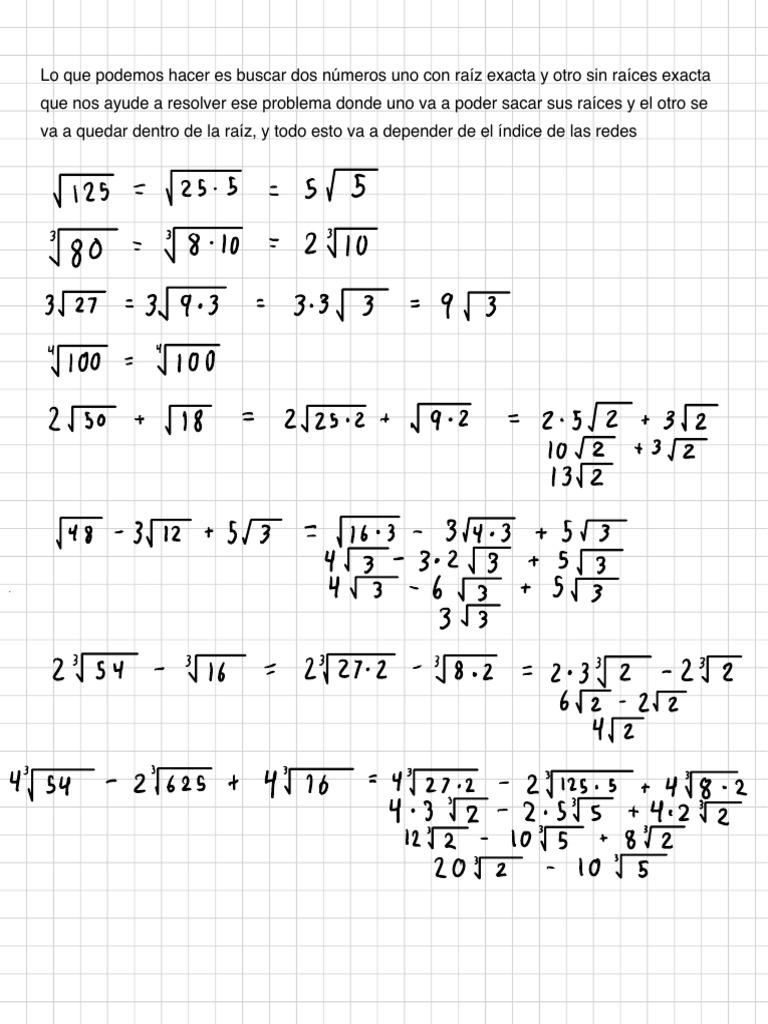 Lo que podemos hacer es buscar dos números uno con raíz exacta y otro sin raíces exacta
que nos ayude a resolver ese problema donde uno va a poder sacar sus raíces y el otro se
va a quedar dentro de la raíz, y todo esto va a depender de el índice de las redes
√125 = √25·5 = 5√5
∛80 = ∛8·10 = 2∛10
3√27 = 3√9·3 = 3·3√3 = 9√3
∜100 = ∜100
2√50 + √18 = 2√25·2 + √9·2 = 2·5√2 + 3√2
10√2 + 3√2
13√2
√48 - 3√12 + 5√3 = √16·3 - 3√4·3 + 5√3
4√3 - 3·2√3 + 5√3
4√3 - 6√3 + 5√3
3√3
2∛54 - ∛16 = 2∛27·2 - ∛8·2 = 2·3∛2 - 2∛2
6√2 - 2√2
4√2
4∛54 - 2∛625 + 4∛16 = 4∛27·2 - 2∛125·5 + 4∛8·2
4·3∛2 - 2·5∛5 + 4·2∛2
12∛2 - 10∛5 + 8∛2
20∛2 - 10∛5